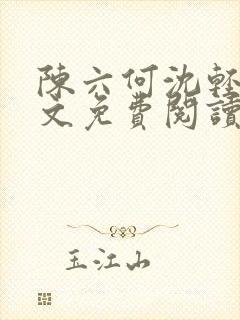 陳六何沈輕
文免費閱讀
玉江山